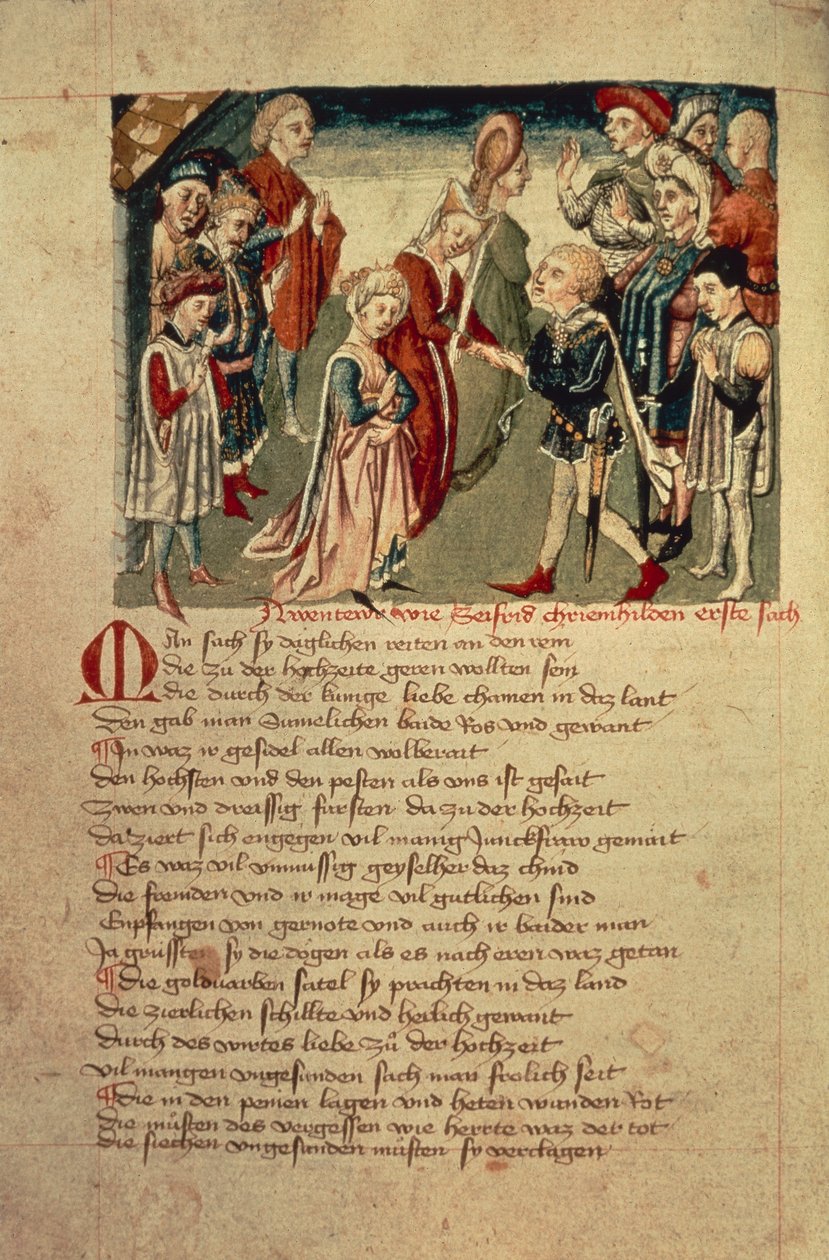 Awentewr wie Seifrid chriemhilden erste sach
Man sach sy däglichen reiten an den rein
die zu der hochzeite geren wollten sein
die durch der kunige liebe chamen in daz lant
den gab man Sumelichen baide Ros vnd gewant
¶ In waz ir gesidel allen wolberait
den hochsten vnd den pesten als vns ist gesait
Zwen vnd dreissig fursten da zu der hochzeit
da ziert sich engegen vil manig Junckfraw gemait
¶ Es waz vil vnmussig geyselher daz chind
die fremden vnd ir mage vil gutlichen sind
Enpfangen von gernote vnd auch ir baider man
Ja grussten sy die dögen als es nach eren waz getan
¶ Die goldvarben satel sy prachten in daz land
die zierlichen schillte vnd herlich gewant
durch des wirtes liebe zů der hochzeit
vil mangen vngesunden sach man frolich seit
¶ die in den peten lagen vnd heten wunden Rot
die můsten des vergessen wie herrte waz der tot
die siechen vngesunden můsten sy verclagen